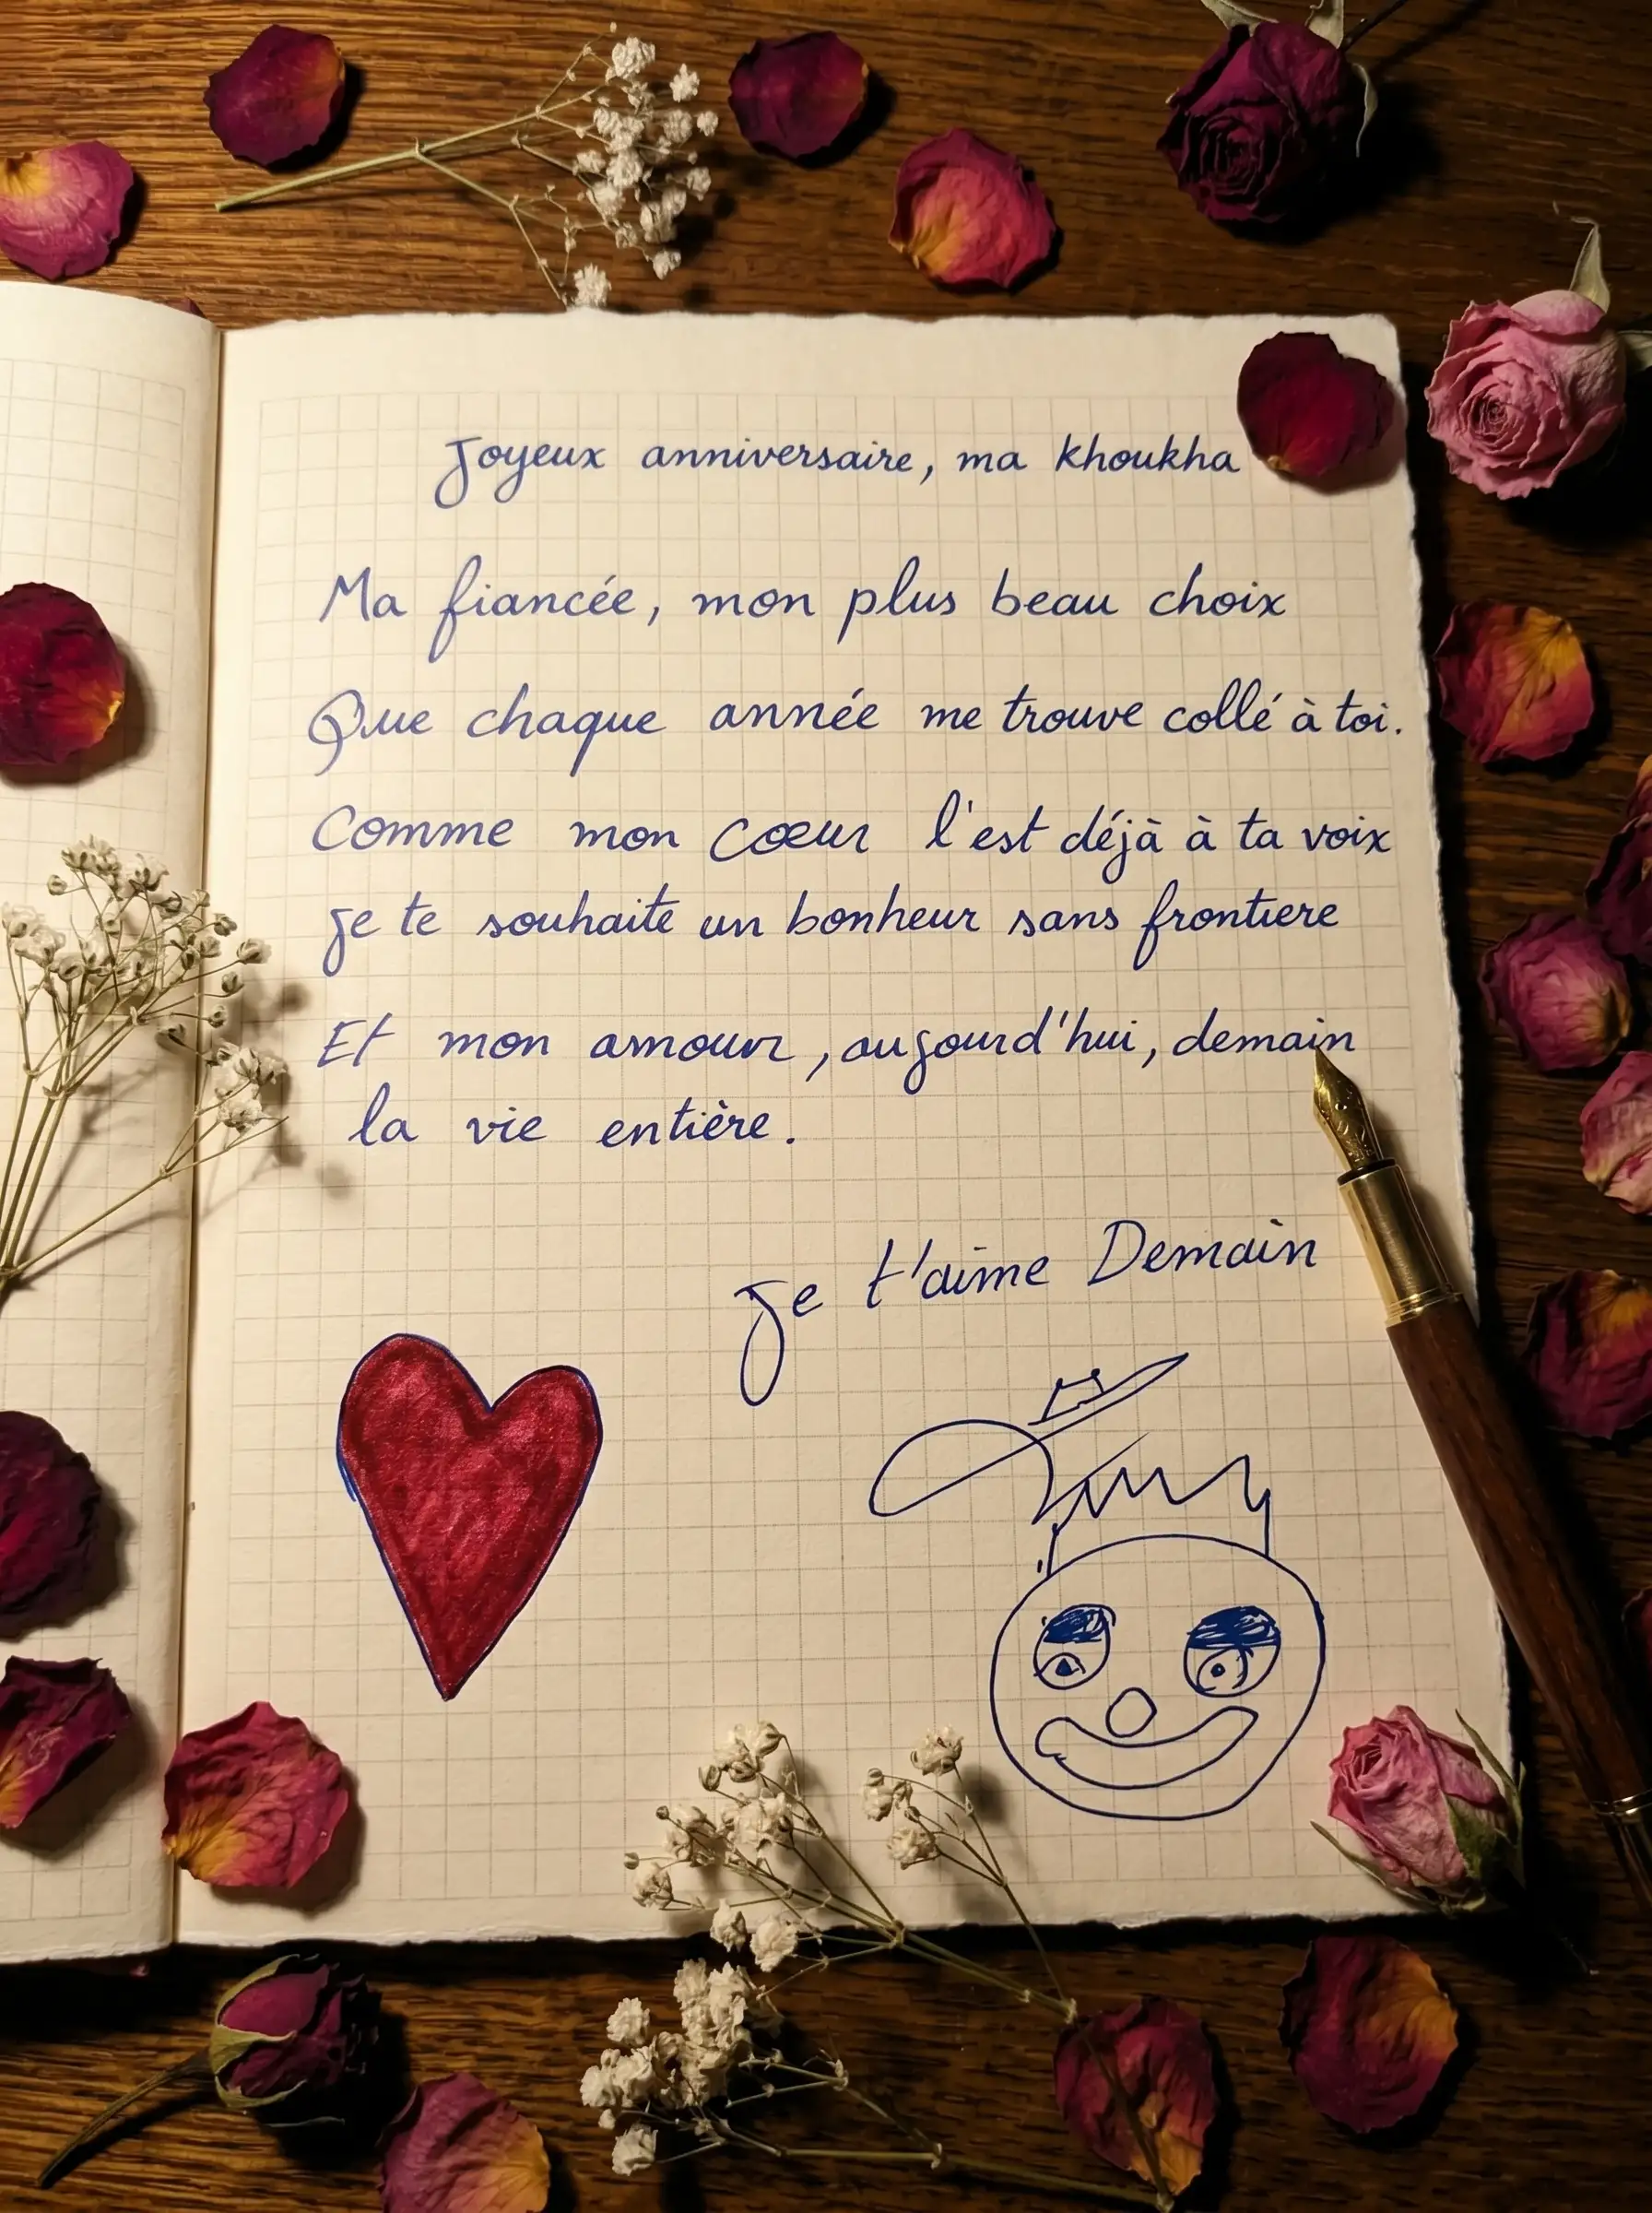 Joyeux anniversaire, ma khoukha
Ma fiancée, mon plus beau choix
Que chaque année me trouve collé à toi.
Comme mon cœur l'est déjà à ta voix
Je te souhaite un bonheur sans frontiere
Et mon amour, aujourd'hui, demain
la vie entière.
Je t'aime Demain